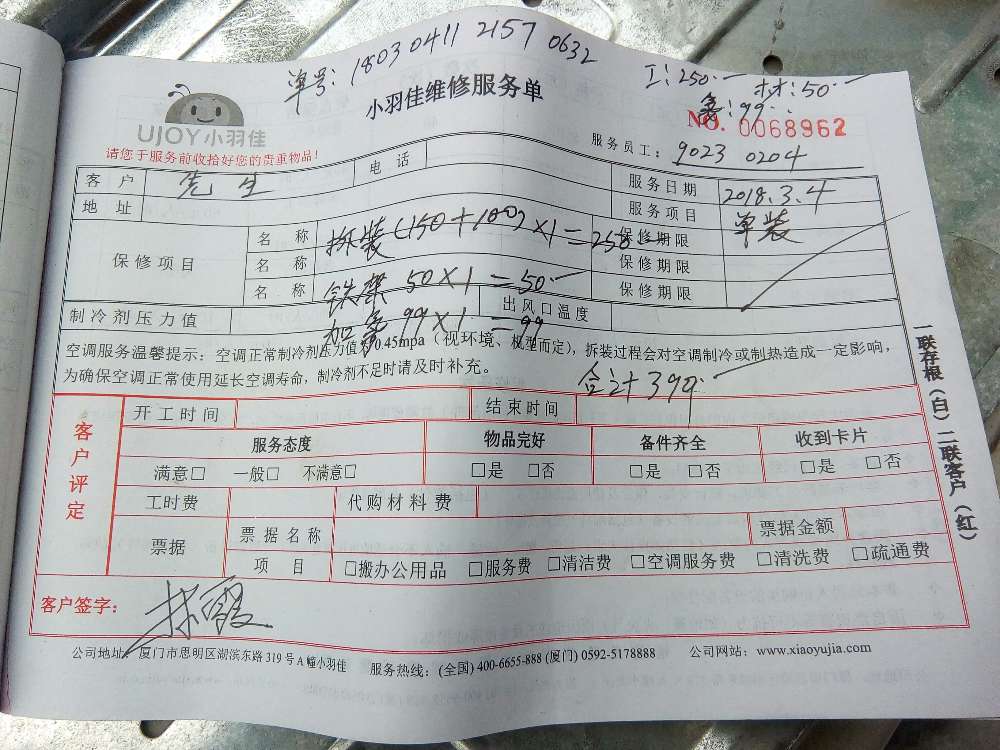 单号: 1803 0411 2157 0632
工: 250.— 材: 50.—
氟: 99.
UJOY小羽佳
小羽佳维修服务单
NO. 0068962
请您于服务前收拾好您的贵重物品!
服务员工: 9023 0204
客户 先生 电话 服务日期 2018.3.4
地址 服务项目 单装
保修项目
名称 拆装(150+100)×1=250.— 保修期限
名称 铁架 50×1=50.— 保修期限
名称 加氟 99×1=99 保修期限
制冷剂压力值 出风口温度
空调服务温馨提示: 空调正常制冷剂压力值为0.45mpa (视环境、机型而定), 拆装过程会对空调制冷或制热造成一定影响,
为确保空调正常使用延长空调寿命, 制冷剂不足时请及时补充。
合计399.—
客户评定
开工时间 结束时间
服务态度 物品完好 备件齐全 收到卡片
满意□ 一般□ 不满意□ □是 □否 □是 □否 □是 □否
工时费 代购材料费
票据 票据名称 票据金额
项目 □搬办公用品 □服务费 □清洁费 □空调服务费 □清洗费 □疏通费
客户签字:
公司地址: 厦门市思明区湖滨东路319号A幢小羽佳 服务热线: (全国) 400-6655-888 (厦门) 0592-5178888 公司网站: www.xiaoyujia.com
一联存根(白)二联客户(红)